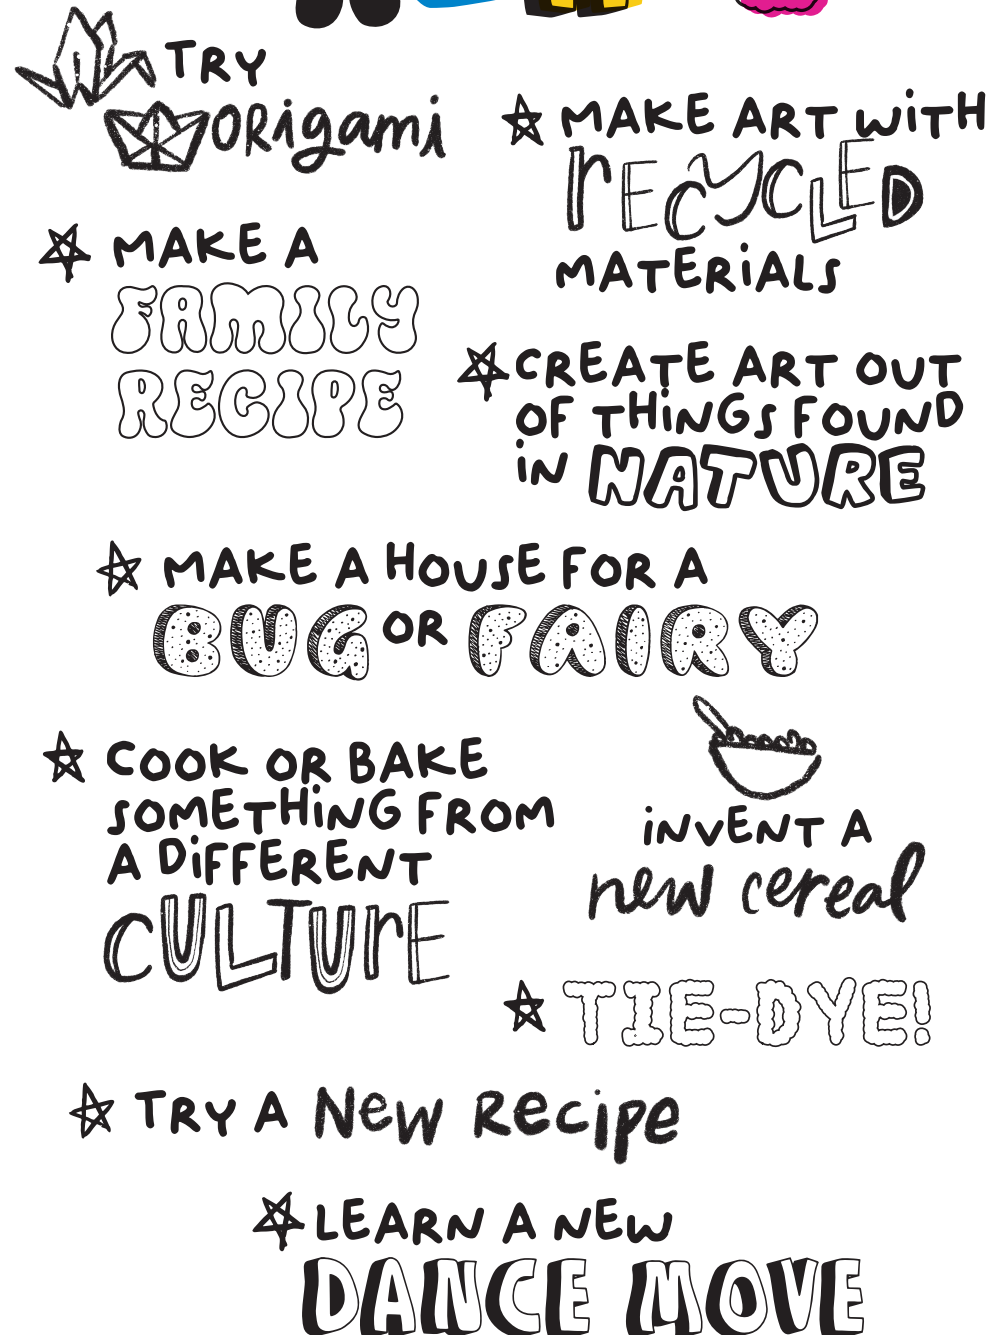 TRY
ORigami
MAKE ART WiTH
rECYCLED
MATERiALS
MAKE A
FAMILY
RECIPE
CREATE ART OUT
OF THiNGS FOUND
iN NATURE
MAKE A HOUSE FOR A
BUG OR FAIRY
COOK OR BAKE
SOMETHiNG FROM
A DiFFERENT
CULTUrE
iNVENT A
new cereal
TIE-DYE!
TRY A New Recipe
LEARN A NEW
DANCE MOVE